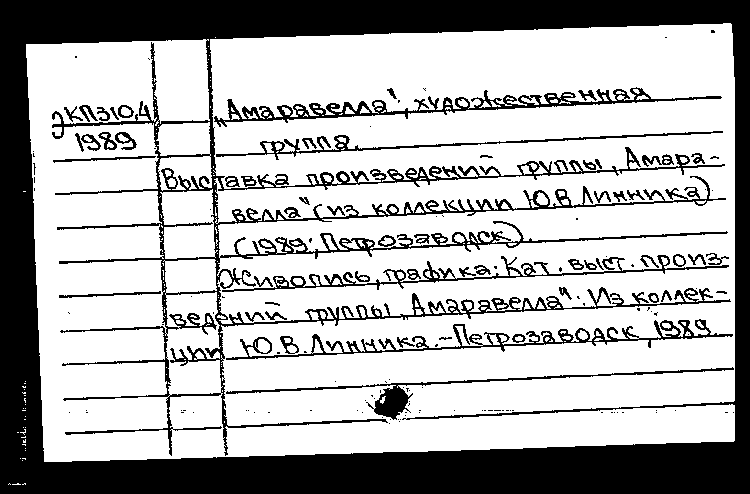 КП310,4 „Амаравелла", художественная
1989 группа.
Выставка произведений группы „Амара-
велла" (из коллекции Ю.В Линника)
(1989; Петрозаводск).
Живопись, графика: Кат. выст. произ-
ведений группы „Амаравелла". Из коллек-
ции Ю.В. Линника.-Петрозаводск, 1989.